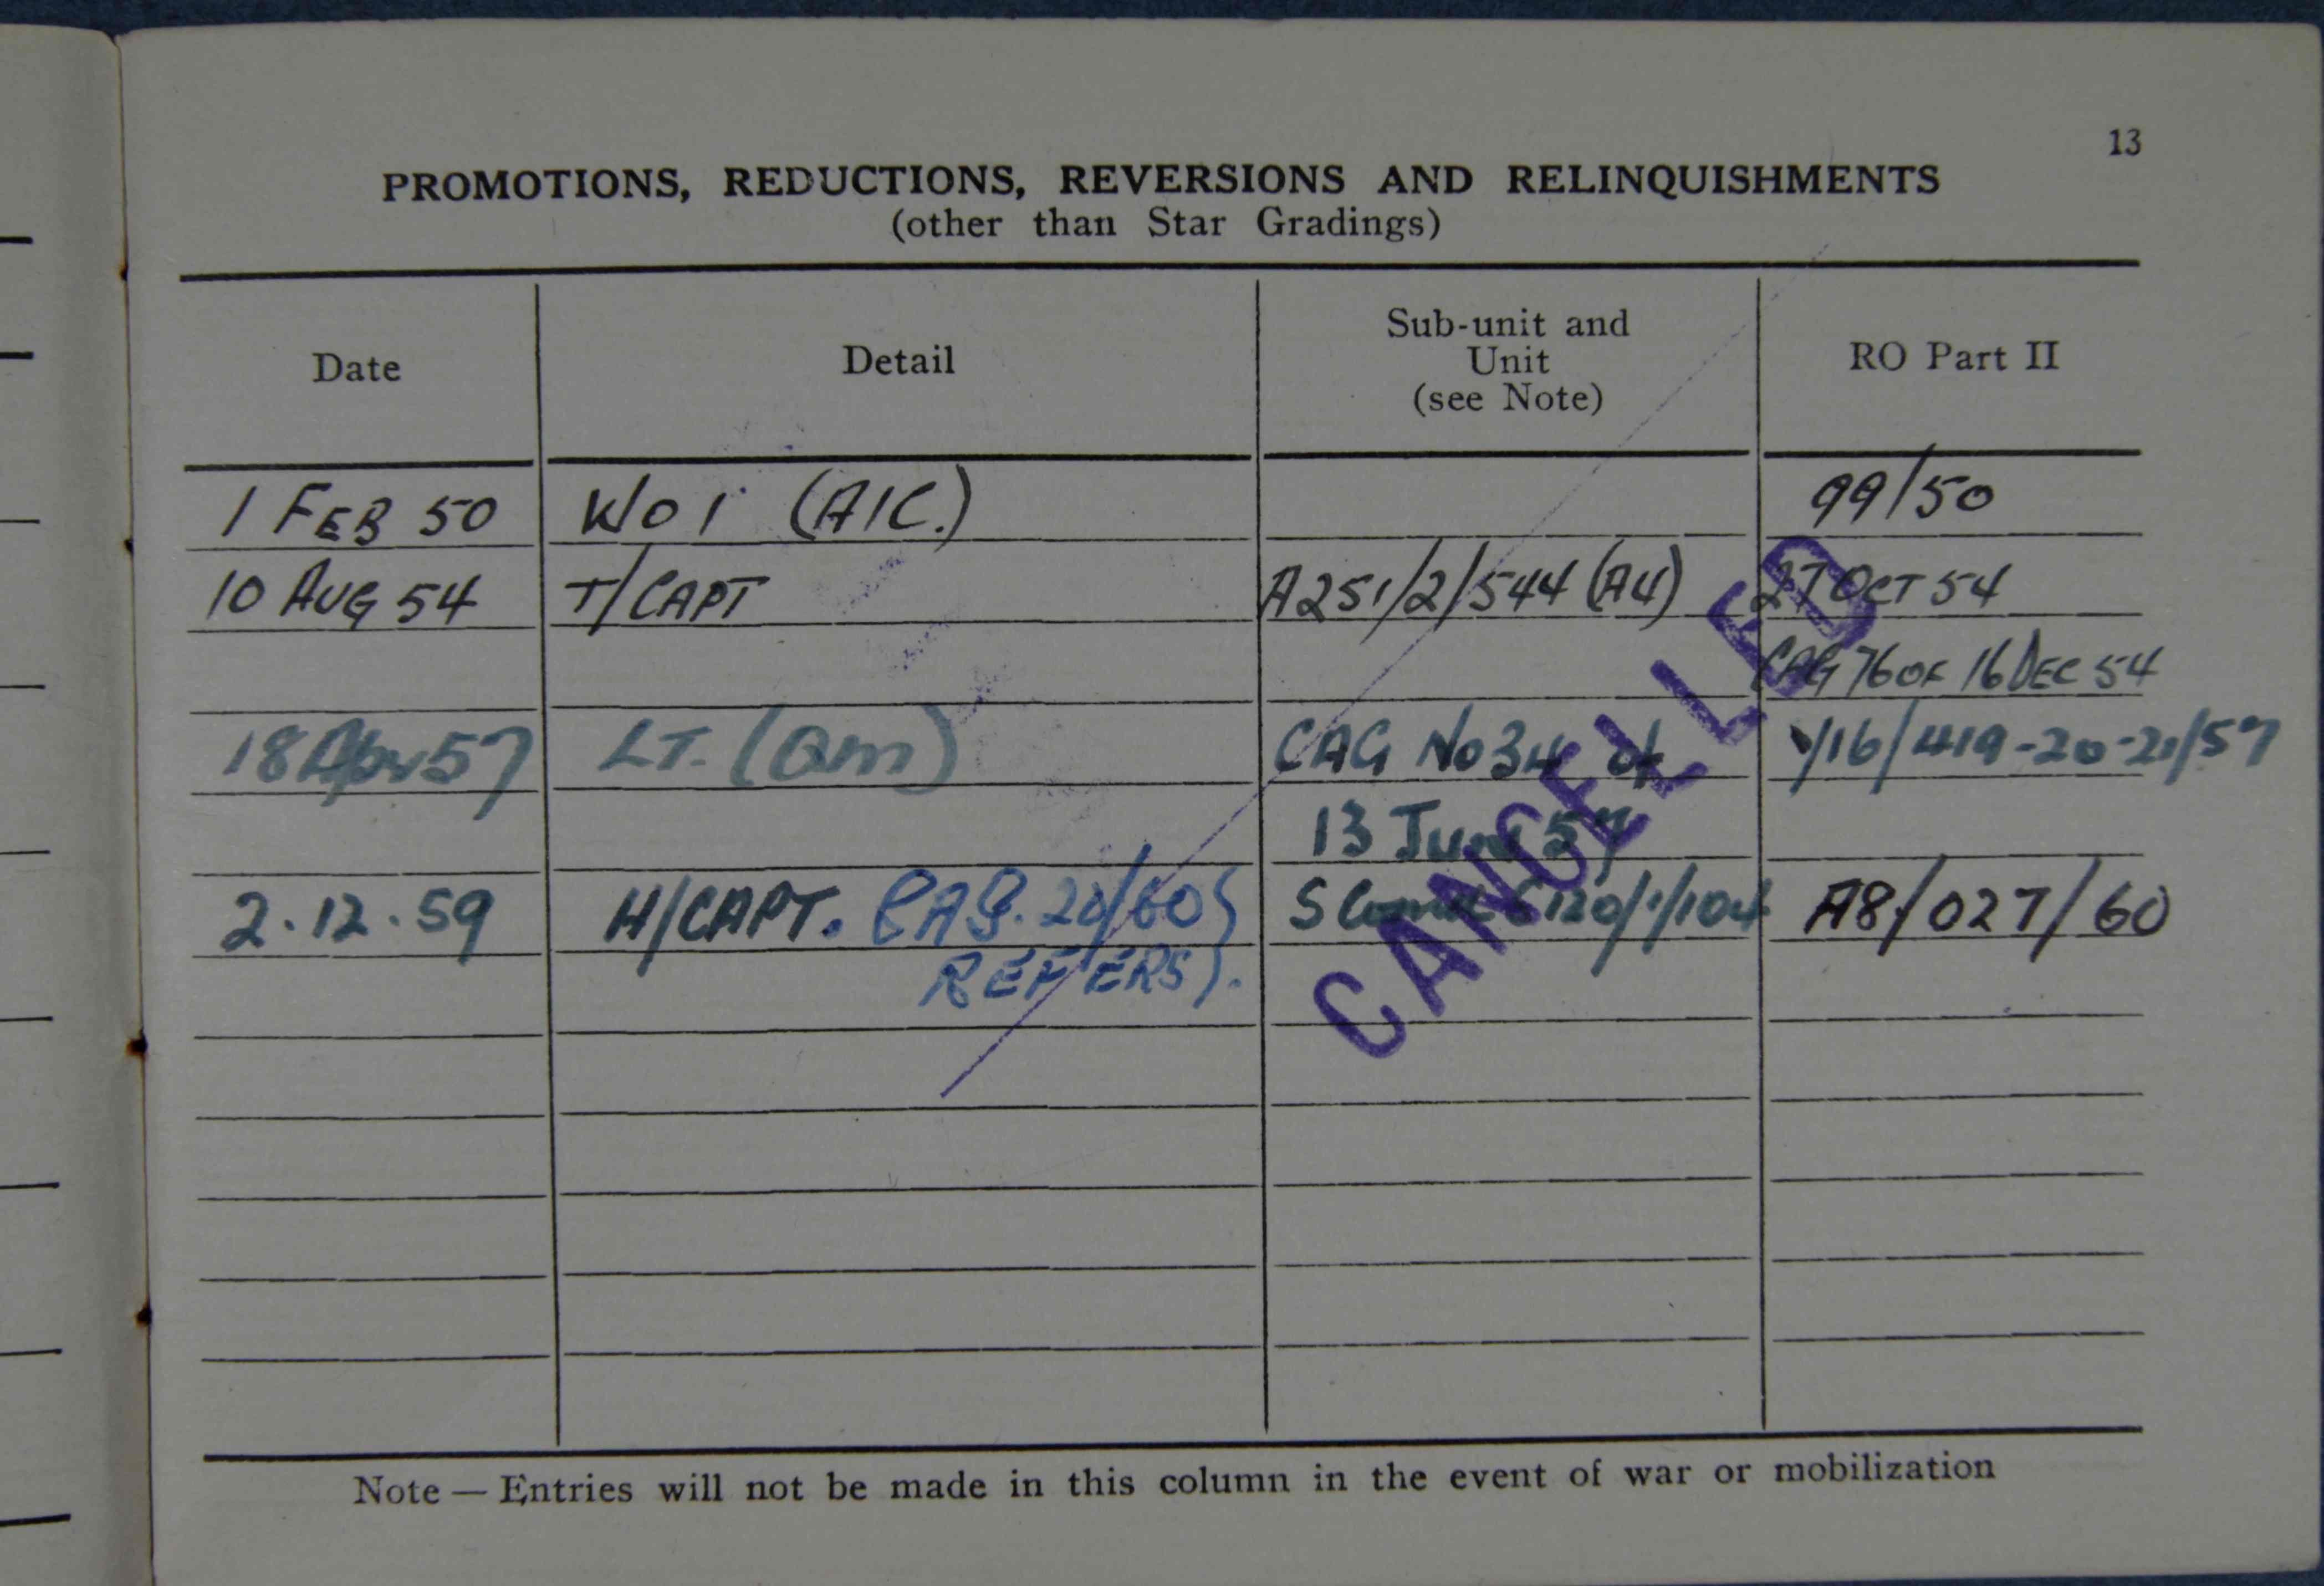 13
PROMOTIONS, REDUCTIONS, REVERSIONS AND RELINQUISHMENTS
(other than Star Gradings)
Date Detail Sub-unit and Unit (see Note) RO Part II
1 FEB 50 WO1 (AIC.) 99/50
10 AUG 54 T/CAPT A251/2/544 (A4) 27 OCT 54
CAG 76 OF 16 DEC 54
18 Apr 57 LT. (Qm) CAG No 34 of 1/16/419-20-21/57
13 June 57
2.12.59 H/CAPT. CAG. 20/60 S Comd S120/1/104 A8/027/60
REFERS).
CANCELLED
Note — Entries will not be made in this column in the event of war or mobilization